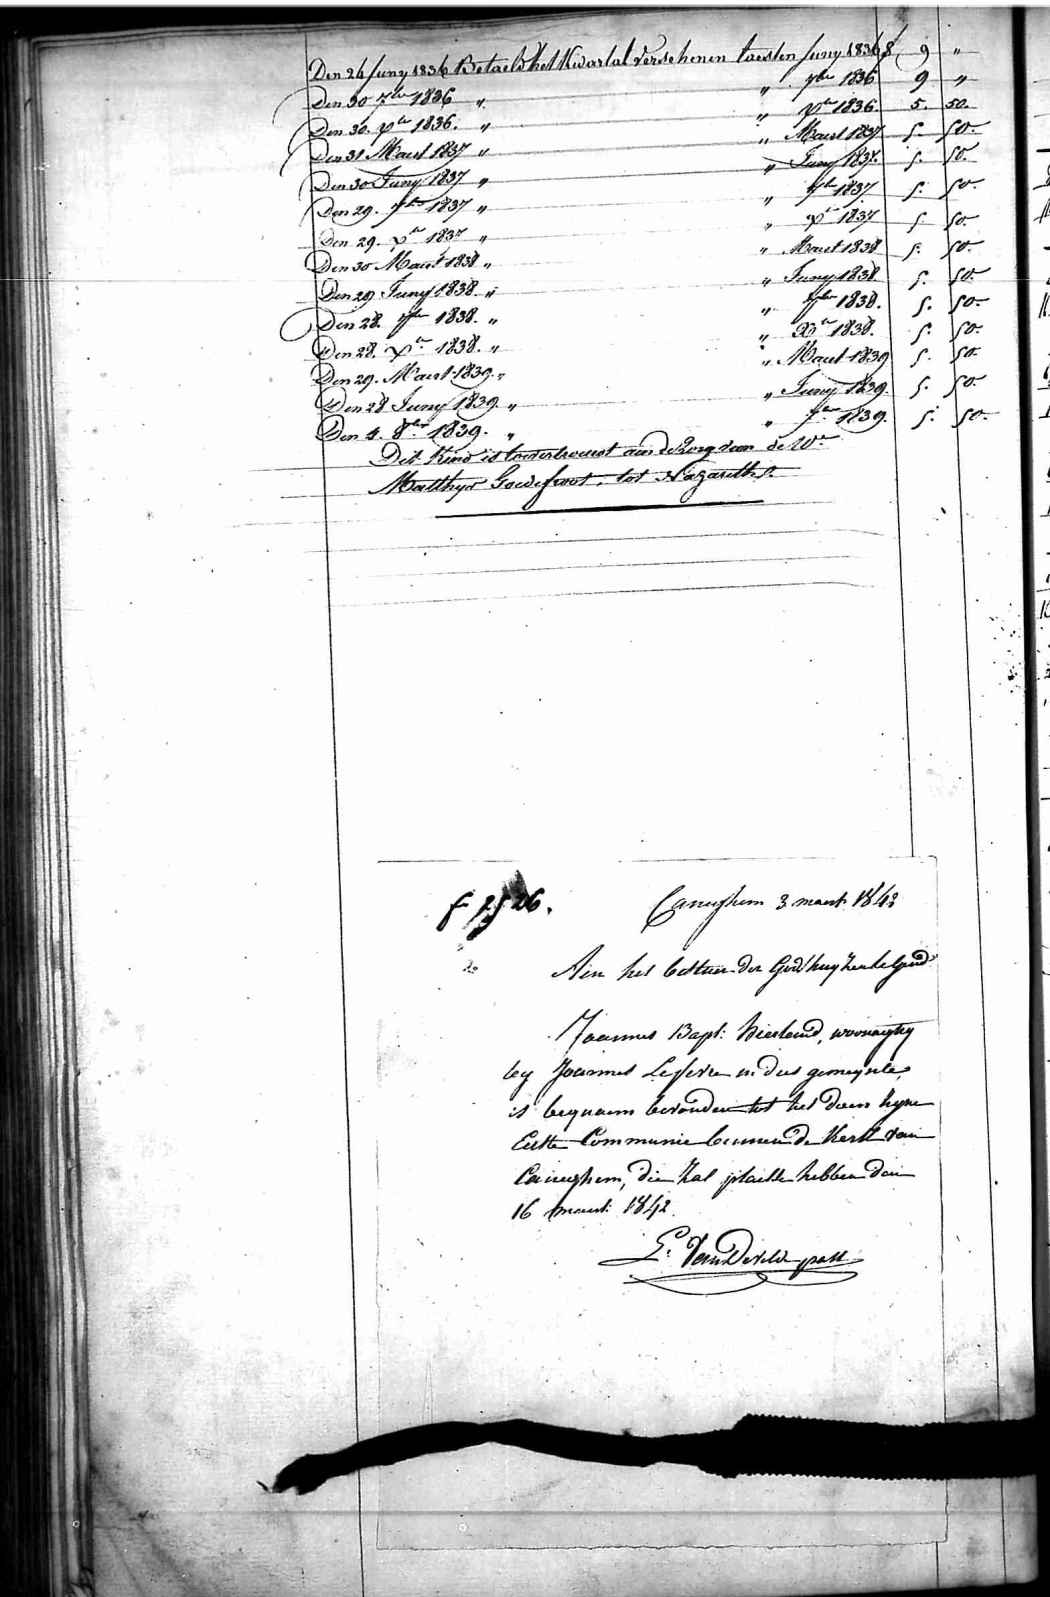 Den 26 Juny 1836 Betaeld het Kwartal verschenen laesten Juny 1836 f 9 "
Den 30 7bre 1836 " " 7bre 1836 9 "
Den 30. Xbre 1836. " " Xbre 1836 5. 50.
Den 31 Maert 1837 " " Maert 1837 5. 50.
Den 30 Juny 1837 " " Juny 1837. 5. 50.
Den 29. 7bre 1837 " " 7bre 1837 5. 50.
Den 29. Xbre 1837 " " Xbre 1837 5. 50.
Den 30 Maert 1838 " " Maert 1838 5. 50.
Den 29 Juny 1838. " " Juny 1838. 5. 50.
Den 28. 7bre 1838. " " 7bre 1838. 5. 50.
Den 28. Xbre 1838. " " Xbre 1838. 5. 50.
Den 29. Maert 1839. " " Maert 1839 5. 50.
Den 28 Juny 1839. " " Juny 1839. 5. 50.
Den 4. 8bre 1839. " " 7bre 1839. 5. 50.
Dit Kind is toevertrouwt aan de zorg van de We
Matthys Goedefroot, tot Nazareth.
26. Caneghem 3 maert 1842
Aen het bestuer der Godshuyzen te Gend
Joannes Bapt: woonagtig
by Joannes Lefevre in dees gemeynte,
is bequaem bevonden tot het doen zyne
Eerste Communie binnen de Kerk van
Caneghem, die zal plaetse hebben den
16 maert 1842.
Van De Velde past